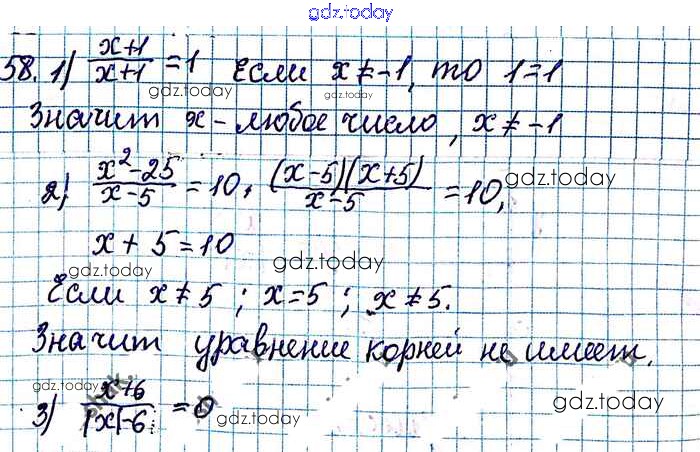 gdz.today
58. 1) x+1/x+1 = 1 Если x ≠ -1, то 1 = 1
gdz.today gdz.today
Значит x - любое число, x ≠ -1
2) x²-25/x-5 = 10, (x-5)(x+5)/x-5 = 10, gdz.today
gdz.today
x + 5 = 10
gdz.today gdz.today
Если x ≠ 5 ; x = 5 ; x ≠ 5.
gdz.today
Значит уравнение корней не имеет.
gdz.today gdz.today
3) x+6/|x|-6 = 0 gdz.today gdz.today